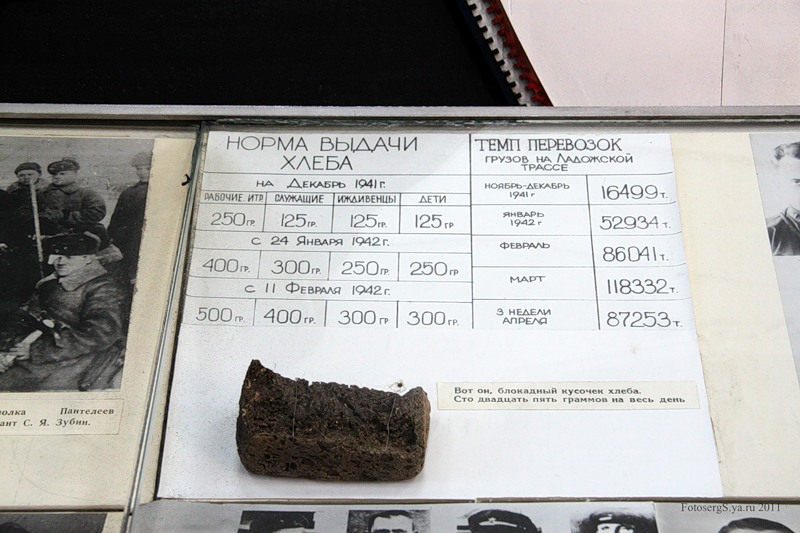 НОРМА ВЫДАЧИ
ХЛЕБА
НА ДЕКАБРЬ 1941 Г.
РАБОЧИЕ, ИТР СЛУЖАЩИЕ ИЖДИВЕНЦЫ ДЕТИ
250 ГР. 125 ГР. 125 ГР. 125 ГР
С 24 ЯНВАРЯ 1942 Г.
400 ГР. 300 ГР. 250 ГР. 250 ГР
С 11 ФЕВРАЛЯ 1942 Г.
500 ГР. 400 ГР. 300 ГР 300 ГР.
ТЕМП ПЕРЕВОЗОК
ГРУЗОВ НА ЛАДОЖСКОЙ
ТРАССЕ
НОЯБРЬ-ДЕКАБРЬ
1941 Г
16499 Т.
ЯНВАРЬ
1942 Г
52934 Т.
ФЕВРАЛЬ
86041 Т.
МАРТ
118332 Т.
3 НЕДЕЛИ
АПРЕЛЯ
87253 Т.
Вот он, блокадный кусочек хлеба.
Сто двадцать пять граммов на весь день
Пантелеев
С. Я. Зубин.
FotosergS.ya.ru 2011